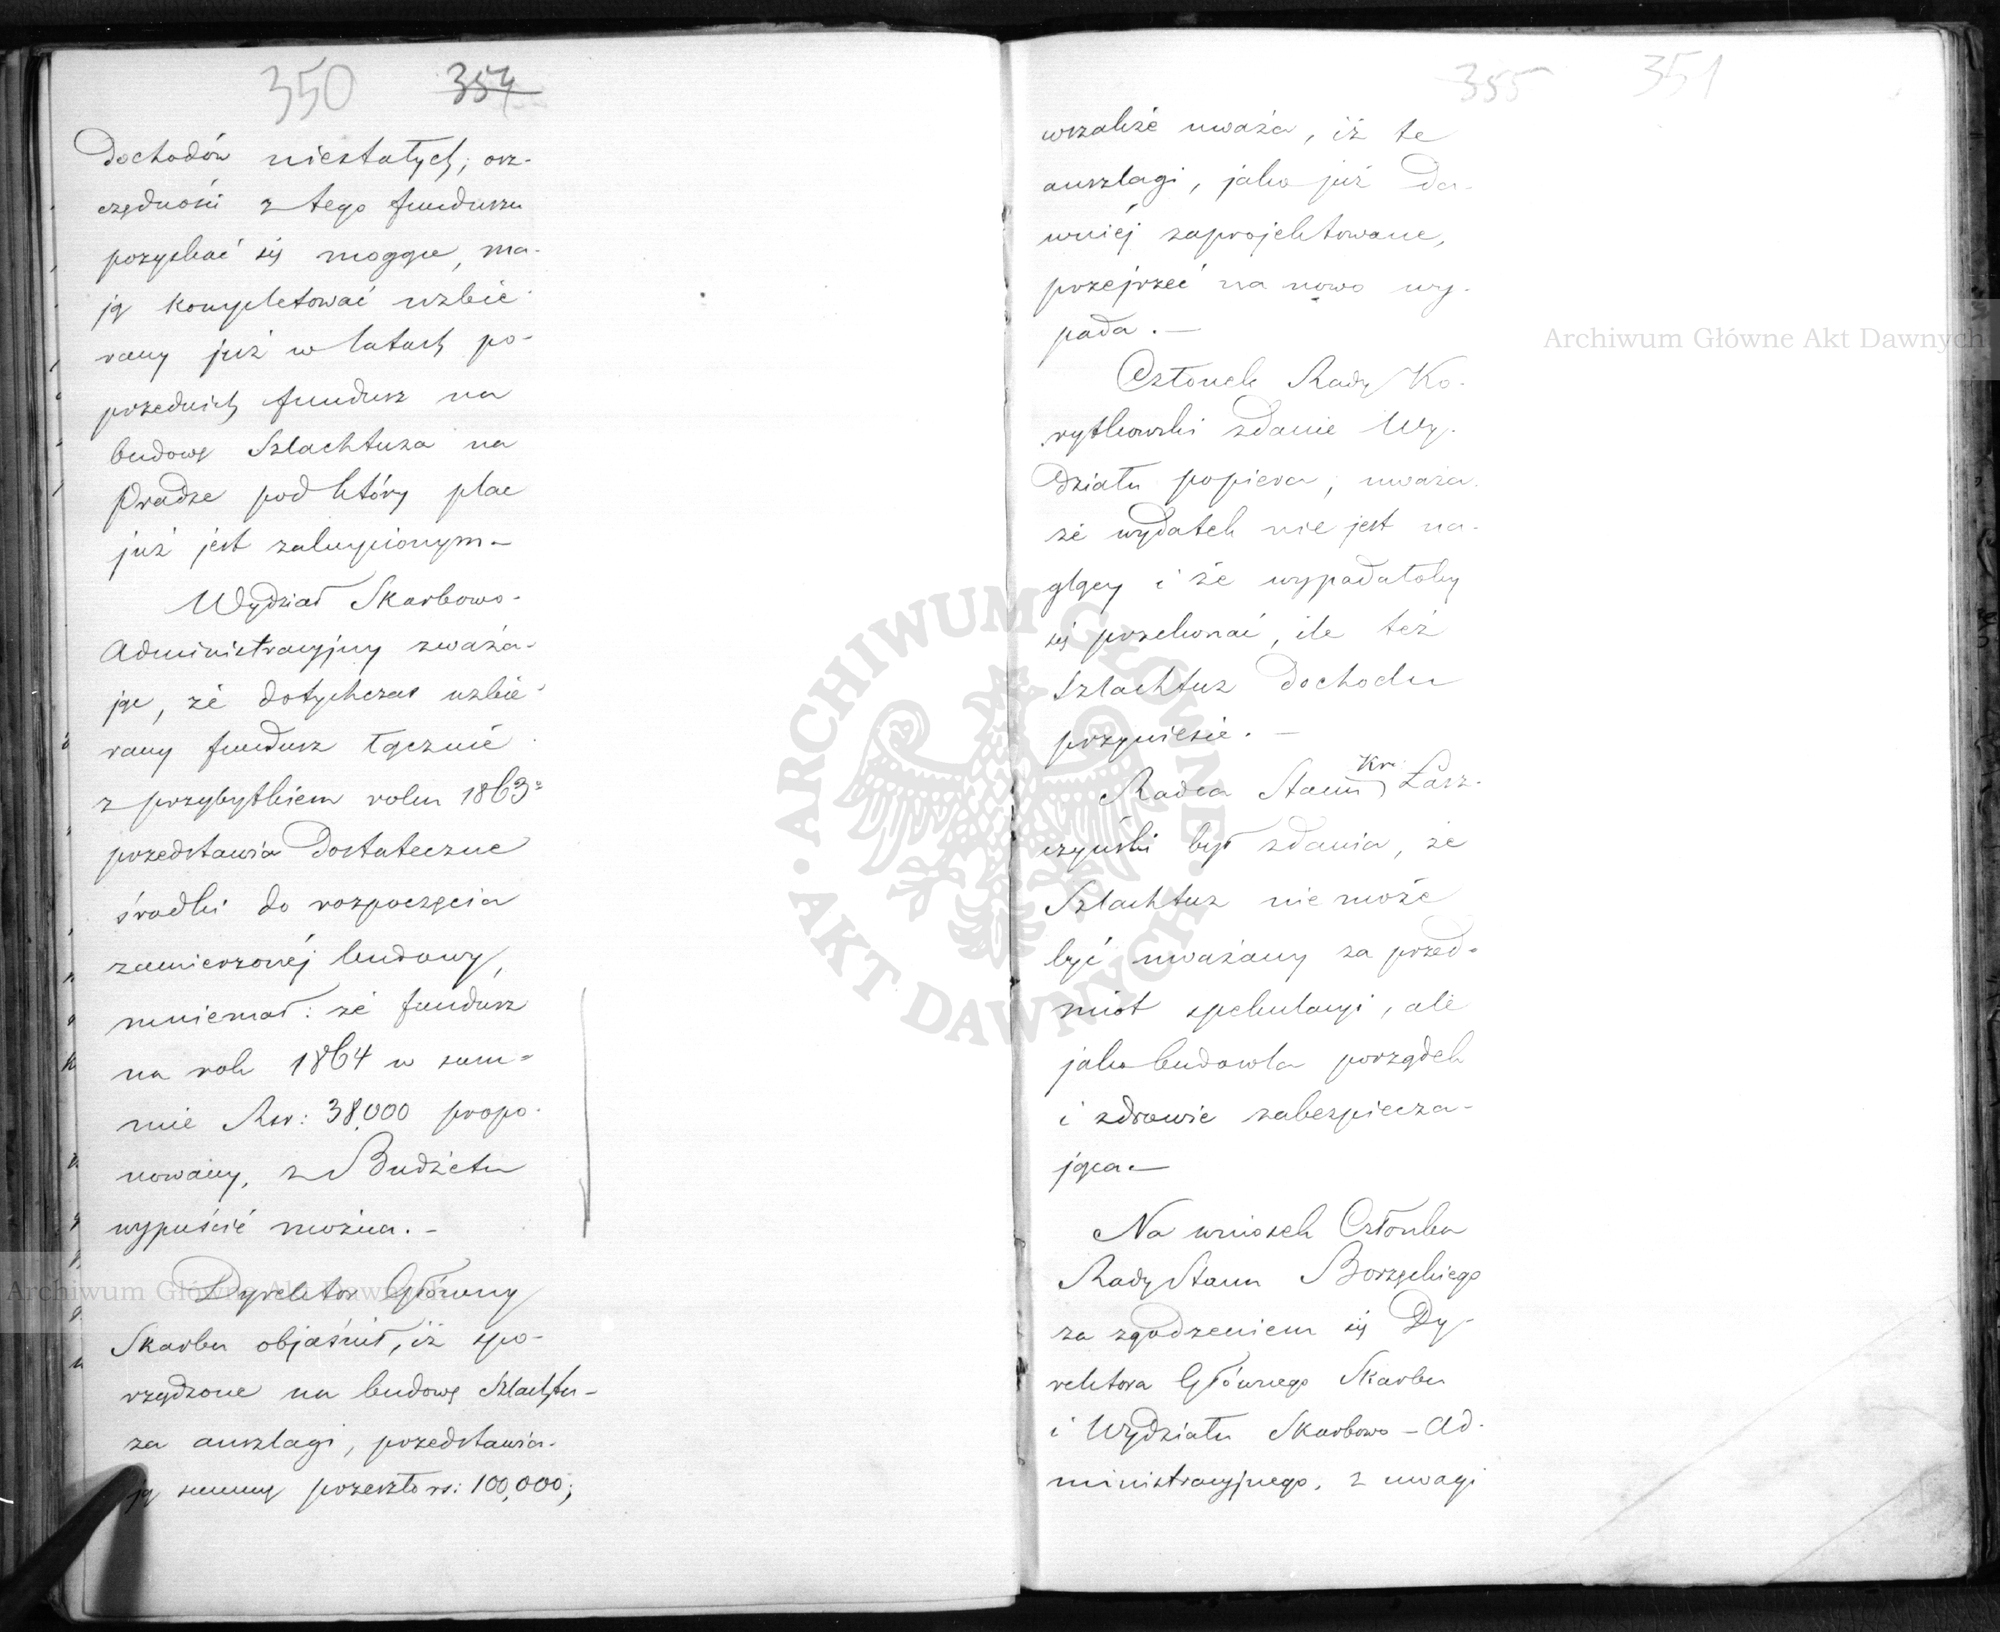 350 354
Dochodów niestałych, osz-
czędności z tego funduszu
pozyskać się mogące, ma-
ją kompletować uzbie-
rany już w latach po-
przednich fundusz na
budowę Szlachtuza na
Pradze pod który plac
już jest zakupionym –
Wydział Skarbowo-
Administracyjny zważa-
jąc, że dotychczas uzbie-
rany fundusz łącznie
z przybytkiem roku 1863º
przedstawia Dostateczne
środki do rozpoczęcia
zamierzonéj budowy,
mniemał: że fundusz
na rok 1864 w sum-
mie Rsr: 38,000 propo-
nowany, z Budżetu
wypuścić można. –
Dyrektor Główny
Skarbu objaśnił, iż spo-
rządzone na budowę Szlachtu-
za anszlagi, przedstawia-
ją summy przeszło rs: 100,000;
355 351
wszakże uważa, iż te
anszlagi, jako już Da-
wniéj zaprojektowane,
przejrzeć na nowo wy-
pada. –
Członek Rady Ko-
rytkowski zdanie Wy-
działu popiera, uważa
że wydatek nie jest na-
glący i że wypadałoby
się przekonać, ile też
Szlachtuz Dochodu
przyniesie. –
Radca Stanu Kr. Łasz-
czyński był zdania, że
Szlachtuz nie może
być uważany za przed-
miot spekulacyi, ale
jako budowla porządek
i zdrowie zabezpiecza-
jąca –
Na wniosek Członka
Rady Stanu Borzęckiego
za zgodzeniem się Dy-
rektora Głównego Skarbu
i Wydziału Skarbowo – Ad-
ministracyjnego, z uwagi
Archiwum Główne Akt Dawnych
Archiwum Główne Akt Dawnych
ARCHIWUM GŁÓWNE · AKT DAWNYCH ·